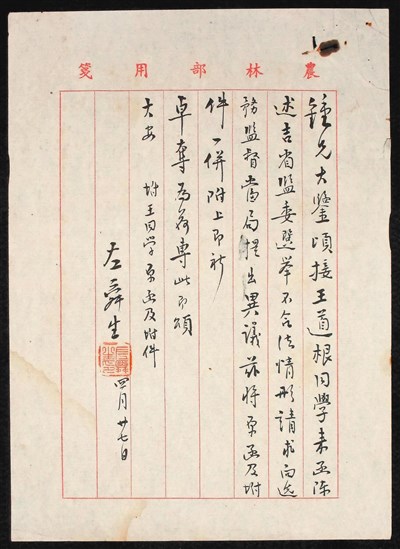 農林部用箋
鍾兄大鑒頃接王道根同學來函陳
述吉省監委選舉不合法情形請求向選
務監督當局提出異議茲將原函及附
件一併附上即祈
卓奪為荷專此即頌
大安
附王同學原函及附件
左舜生
四月廿七日